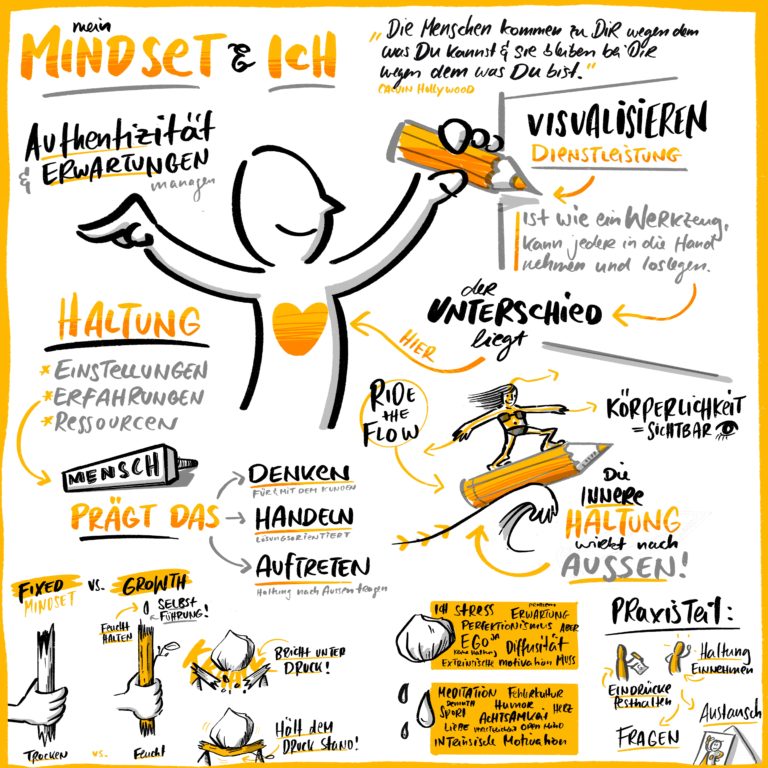 mein
MINDSET & ICH
„Die Menschen kommen zu DIR wegen dem
was Du kannst & sie bleiben bei DIR
wegen dem was Du bist."
CALVIN HOLLYWOOD
Authentizität
& ERWARTUNGEN
managen
VISUALISIEREN
DIENSTLEISTUNG
Ist wie ein WERKZEUG,
kann jeder in die Hand
nehmen und loslegen.
der
UNTERSCHIED
liegt
HIER
HALTUNG
* EINSTELLUNGEN
* ERFAHRUNGEN
* RESSOURCEN
MENSCH
PRÄGT DAS
DENKEN
FÜR & MIT DEM KUNDEN
HANDELN
LÖSUNGSORIENTIERT
AUFTRETEN
Haltung nach Aussen tragen
RIDE
the
FLOW
KÖRPERLICHKEIT
= SICHTBAR
Die
INNERE
HALTUNG
wirkt nach
AUSSEN!
FIXED
MINDSET
vs.
GROWTH
SELBST
FÜHRUNG!
Feucht
HALTEN
TROCKEN
vs.
Feucht
BRICHT UNTER
DRUCK!
Hält dem
DRUCK STAND!
ICH STRESS ERWARTUNG
PERFEKTIONISMUS ABER
EGO JA Diffusität
Keine Haltung
EXTRINSISCHE MOTIVATION MUSS
MEDITATION Fehlerkultur
DEMUTH Humor HERZ
SPORT ACHTSAMKEIT
LIEBE OPEN MIND
INTRINSISCHE MOTIVATION
PRAXISTEIL:
EINDRÜCKE
festhalten
Haltung
EINNEHMEN
FRAGEN
Austausch